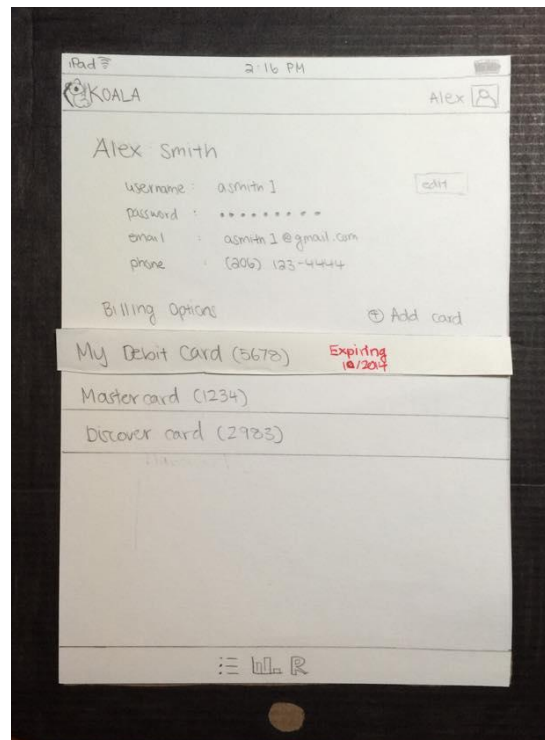 iPad 2:16 PM
KOALA Alex
Alex Smith
username: asmith1 edit
password: •••••••••
email: asmith1@gmail.com
phone: (206) 123-4444
Billing Options + Add card
My Debit Card (5678) Expiring
10/2014
Mastercard (1234)
Discover card (2983)
R